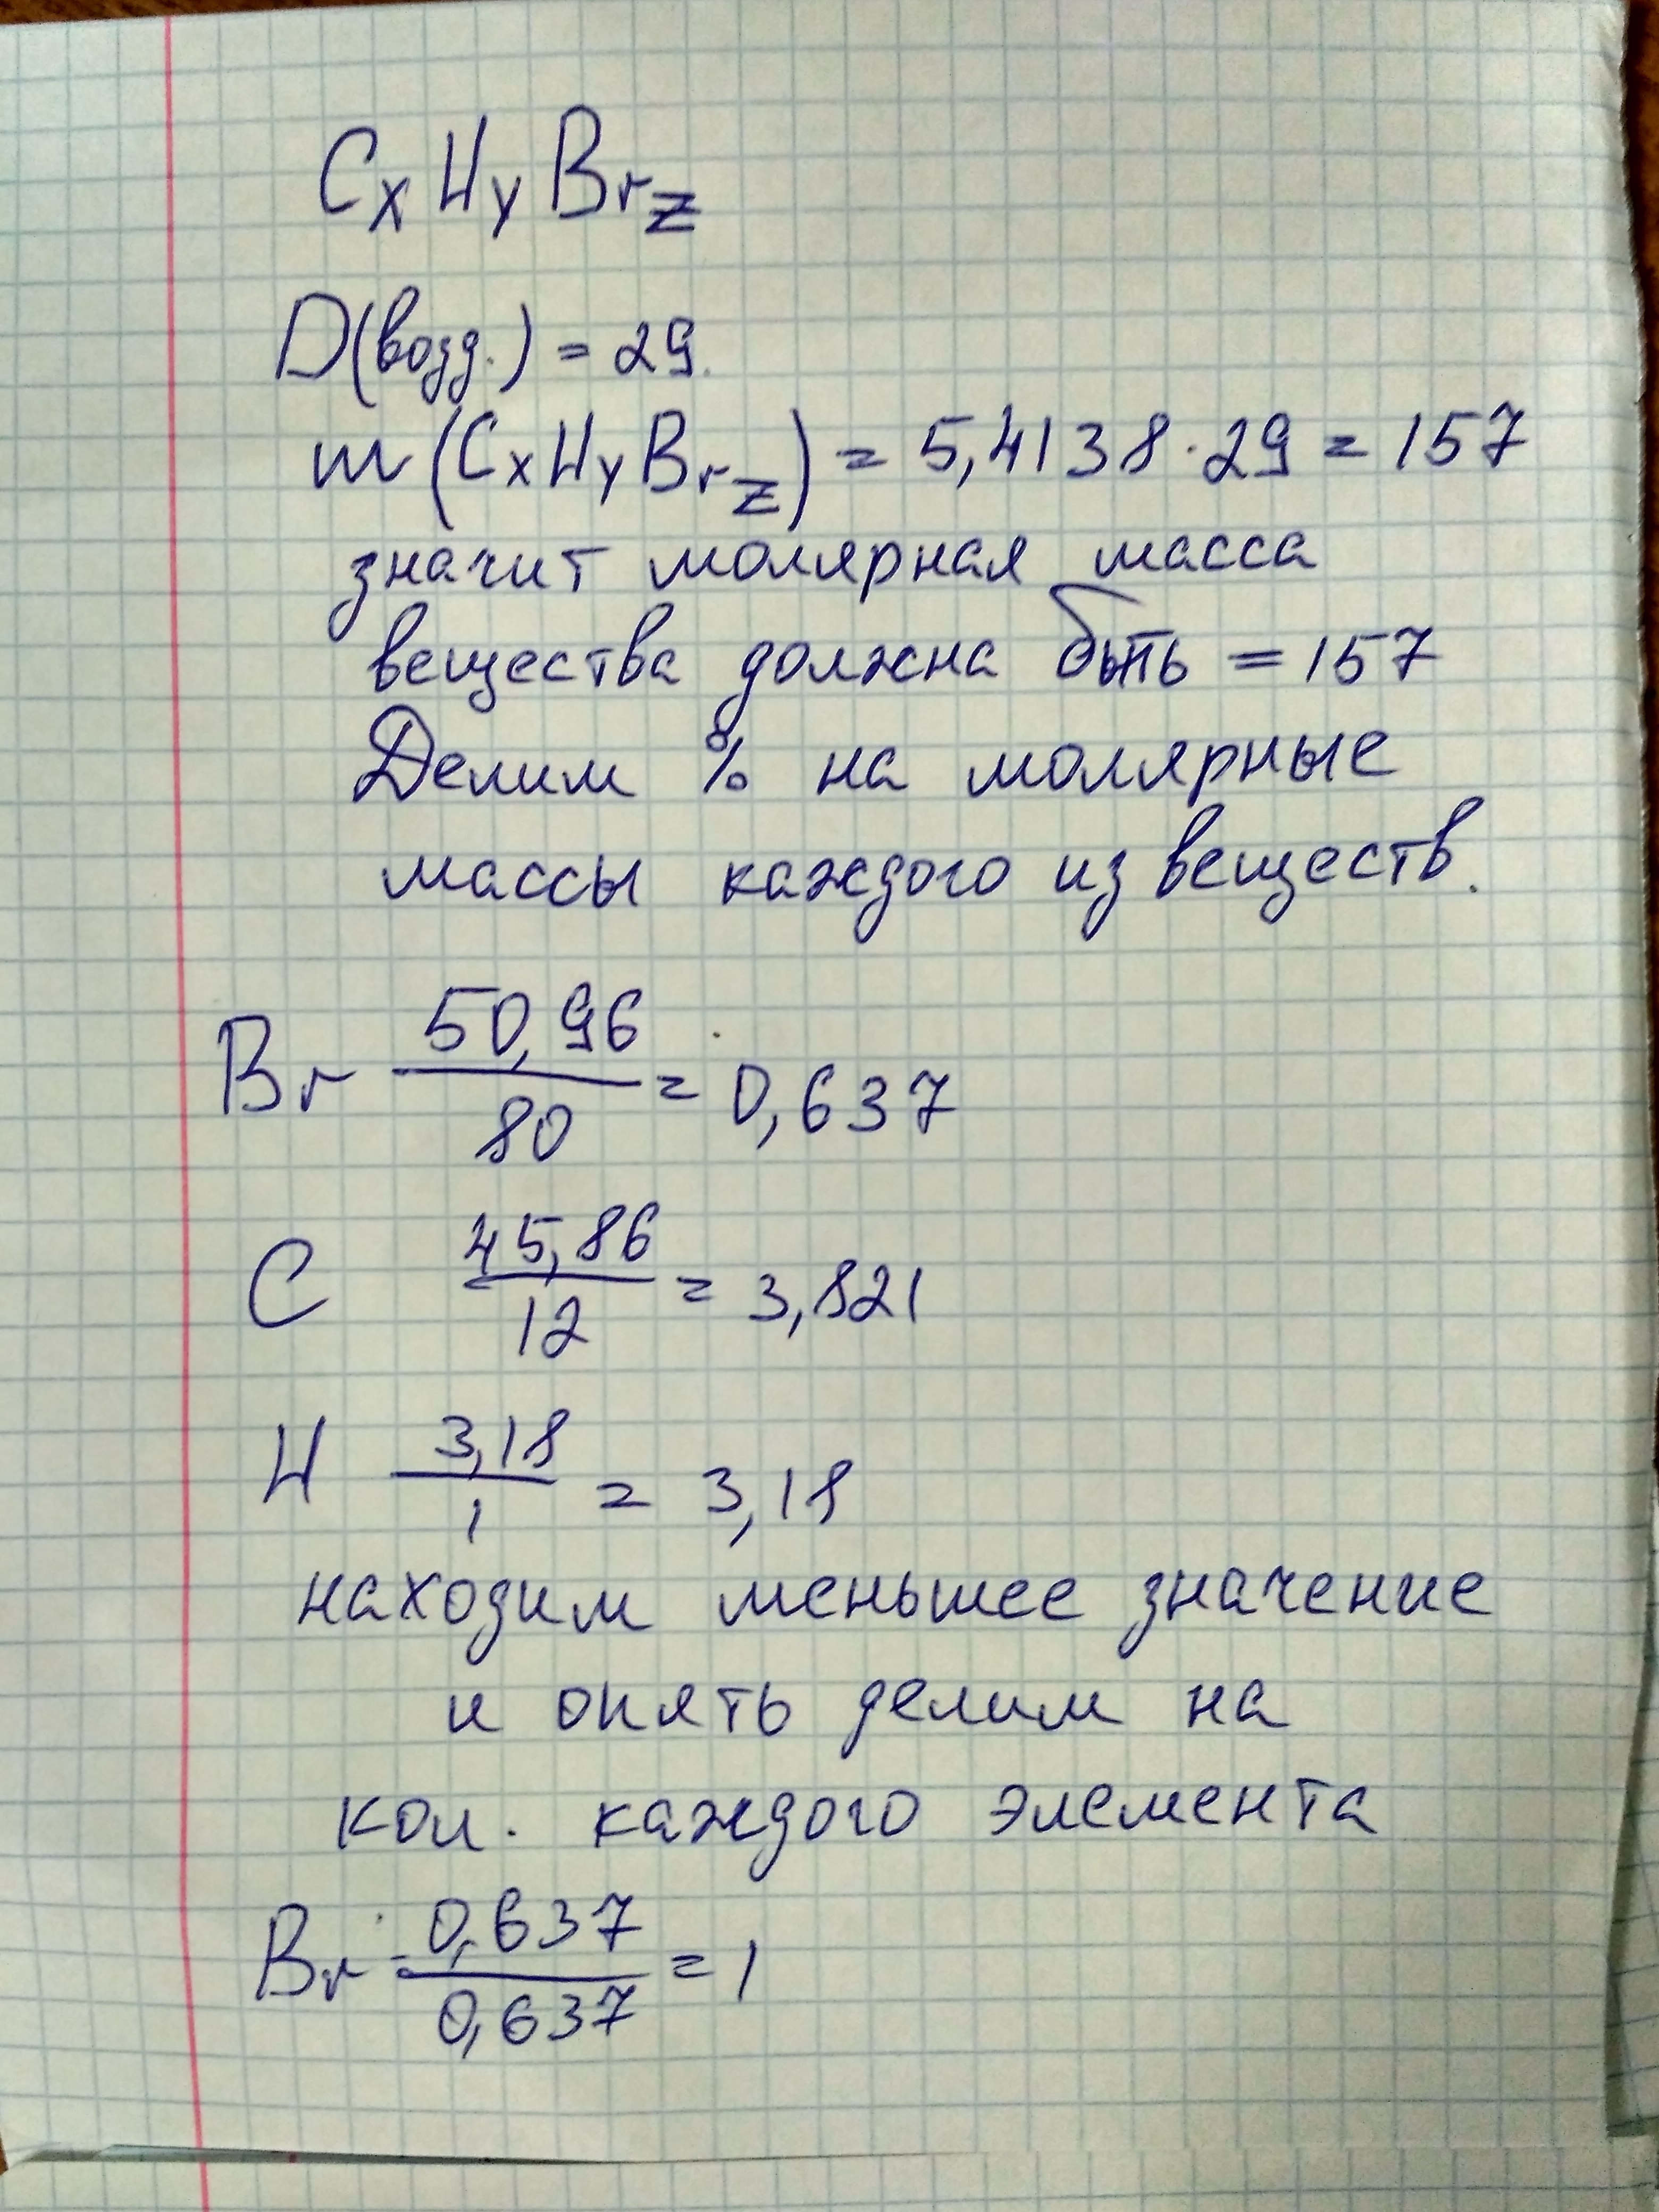 CxHyBrz
D(возд.) = 29.
m (CxHyBrz) = 5,4138 · 29 = 157
значит молярная масса
вещества должна быть = 157
Делим % на молярные
массы каждого из веществ.
Br 50,96/80 = 0,637
C 45,86/12 = 3,821
H 3,18/1 = 3,18
находим меньшее значение
и опять делим на
кол. каждого элемента
Br 0,637/0,637 = 1